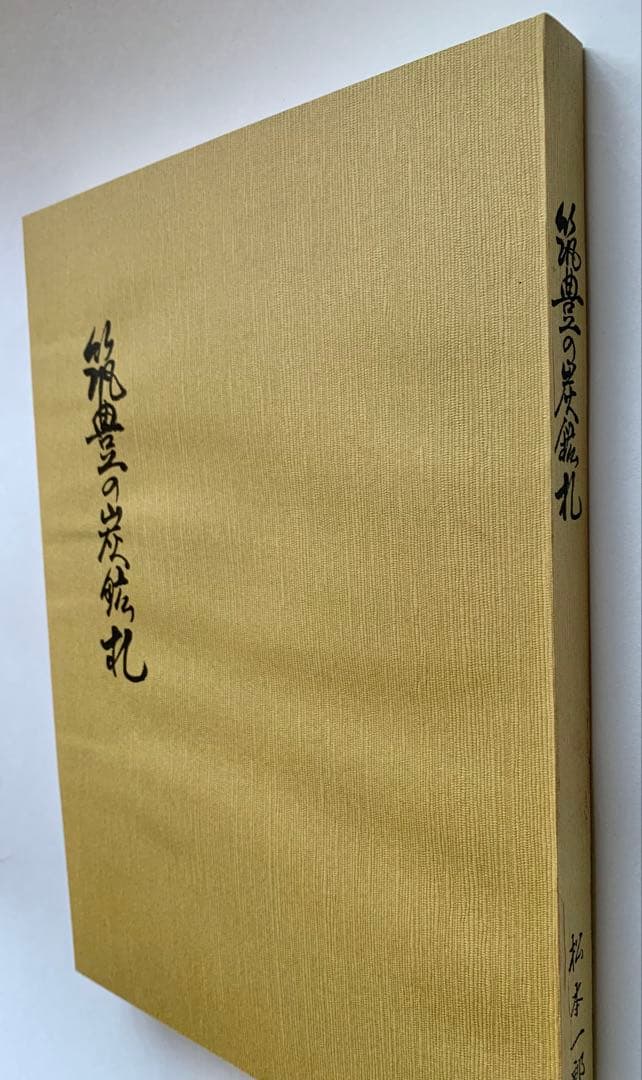 筑豊の炭鉱札
筑豊の炭鉱札
松本一郎